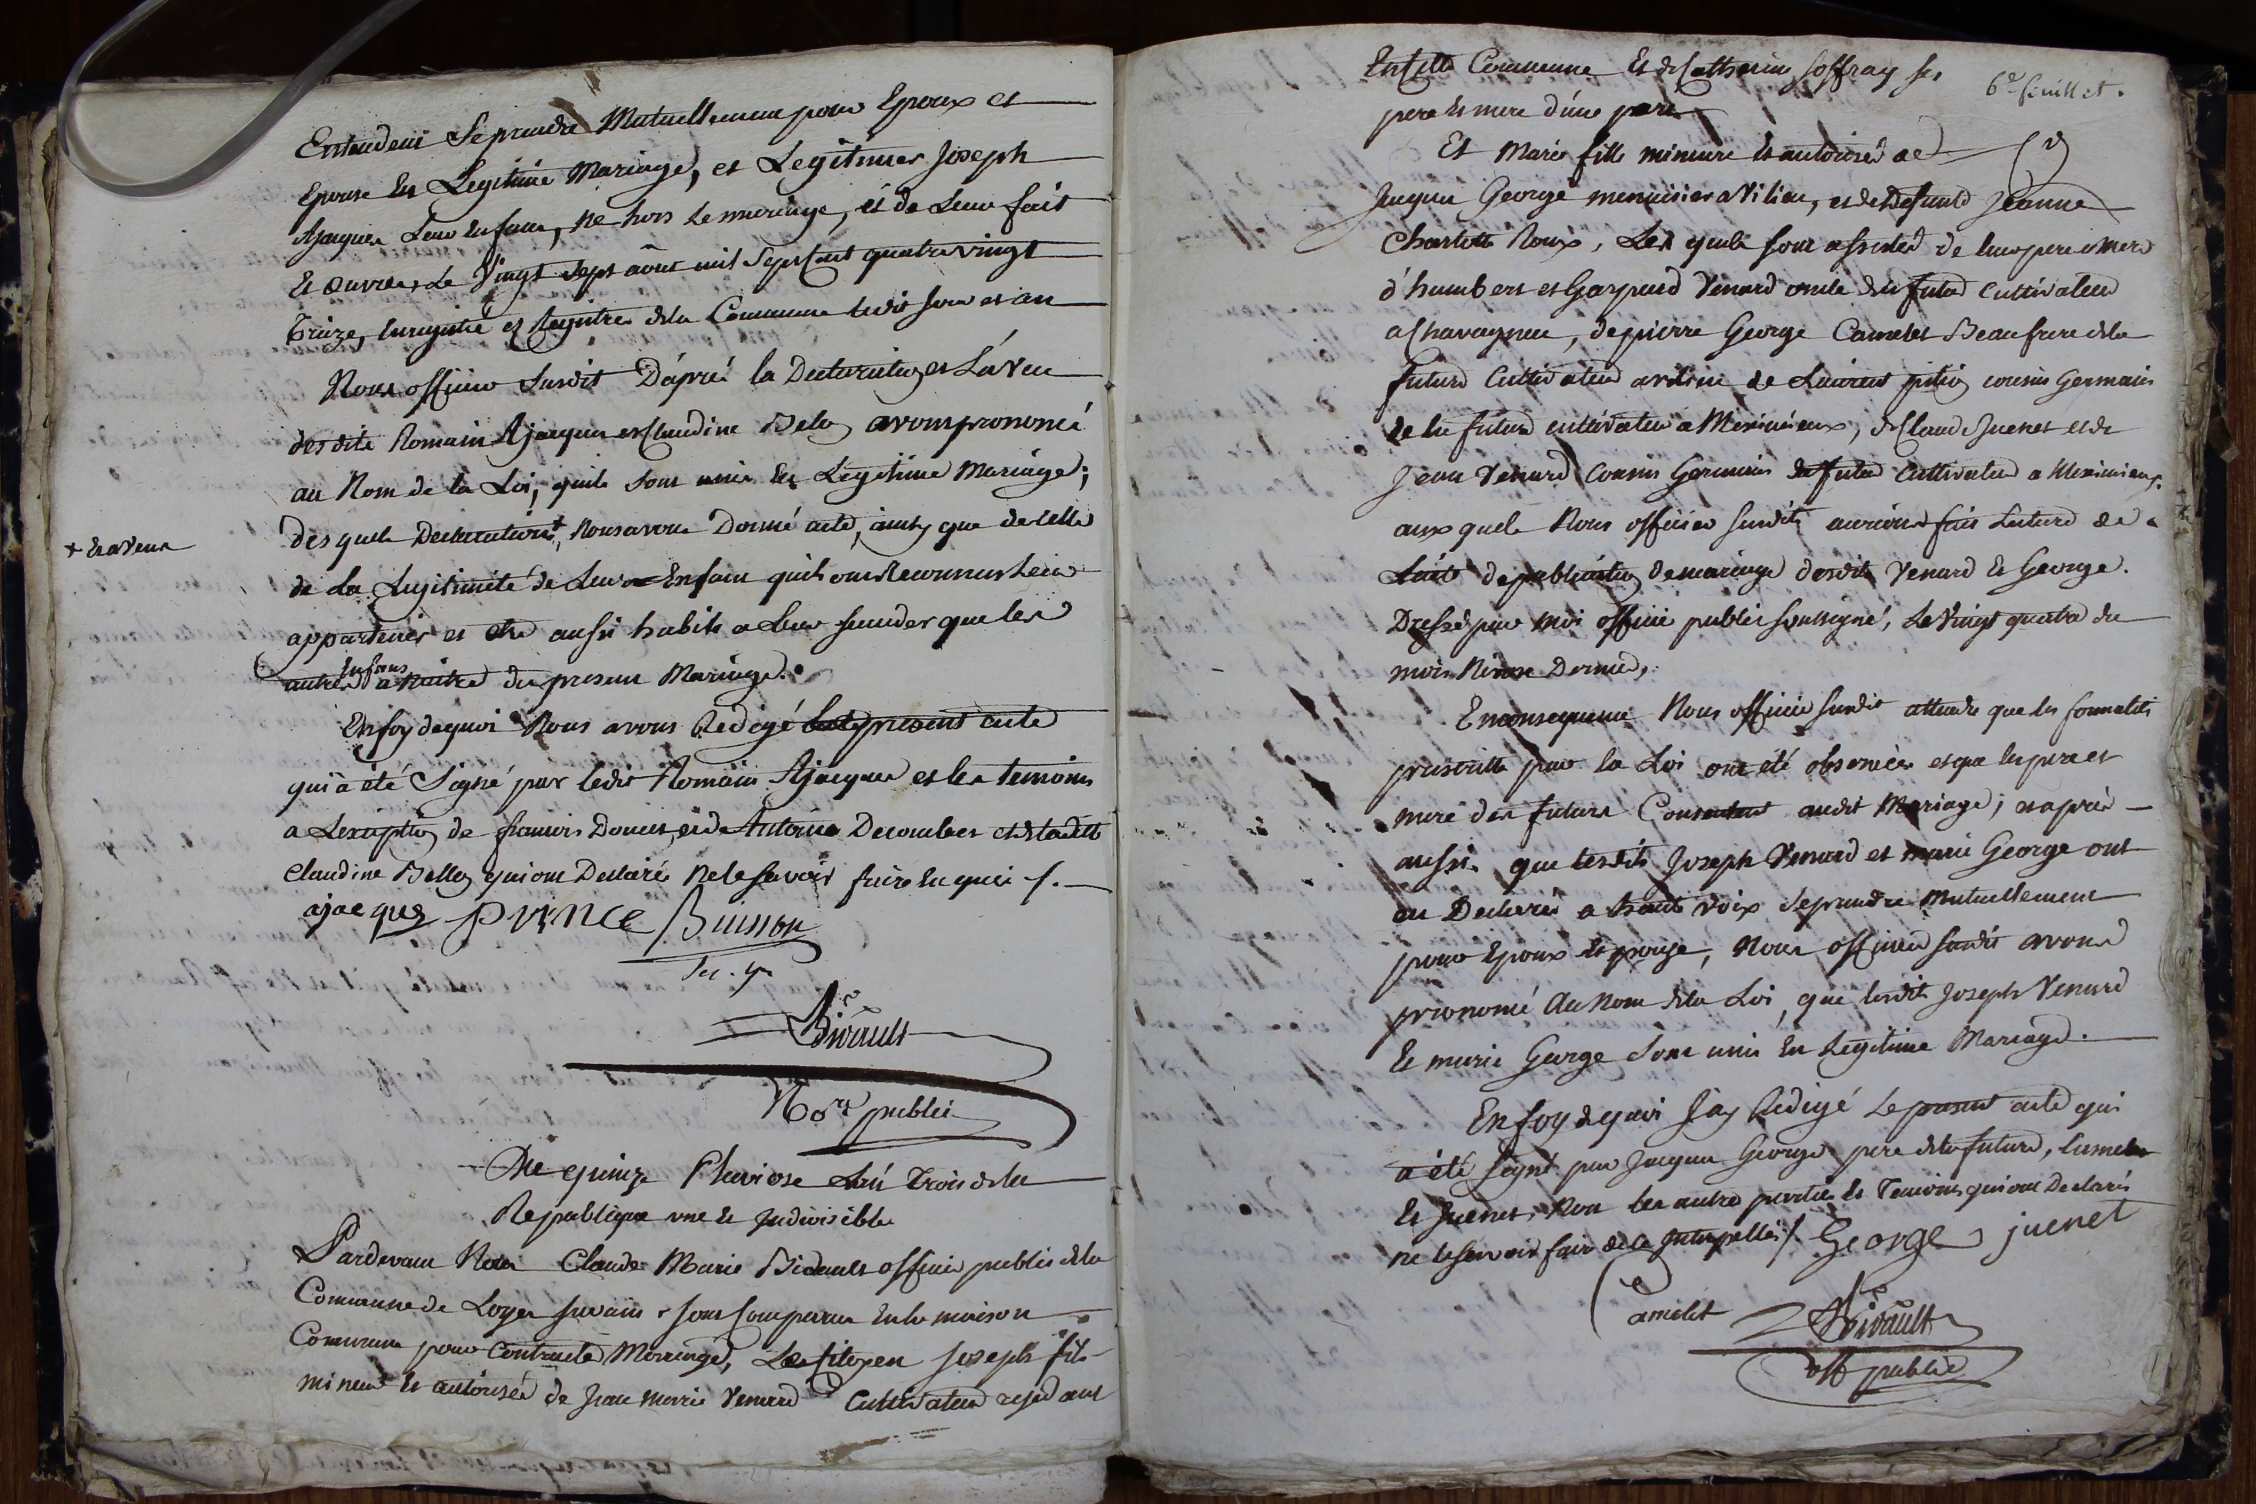 Entendent Se prendre Mutuellement pour Epoux et
Epouse En Legitime Mariage, et Legitimer Joseph
Ajacques Leur Enfant, né hors le mariage, et de Leur fait
Et oeuvres Le Vingt Sept aôut mil Sept Cent quatre vingt
treize, Enregistré es Registres de la Commune ledit Jour et an
Nous officier Susdit D'aprés la Declaration et L'aveu
desdits Romain Ajacques et Claudine Belloy avons prononcé
au Nom de la Loi, quils sont unis En Legitime Mariage;
des quels Declarations +, Nous avons Donné acte, ainsy que de celle
+ Et aveux
de La Legitimité de Leur Enfant quils ont Reconnus Leur
appartenir et etre aussi habile a Leur succeder que les
autres Enfans a Naitre du present Mariage.
En foy de quoi Nous avons Redigé le present acte
qui à été Signé par ledit Romain Ajacques et les temoins
a Lexeption de francois Doucet, et de Antoine Decombes et de ladite
Claudine Belloy qui ont Declaré Ne le Savoir faire Enquis /.
ajacques prince Buisson
Bidault
Off.er public
Die quinze Pluviose L'an Trois de la
Republique une Et Indivisible
Pardevant Nous Claude Marie Bidault officier public de la
Commune de Loyes Suivant Sont Comparus En la maison
Commune pour Contracter Mariage, Le Citoyen Joseph fils
mineur Et autorisé de Jean Marie Venard Cultivateur residant
6e feuillet.
En Cette Commune Et de Catherine Joffray Ses
pere Et mere d'une part
Et Marie fille mineure Et autorisée de
Jacques George menuisier a Vilieu, et de defunte Jeanne
Charlotte Roux, Les quels sont assistés de leurs pere et mere
d'humbert et Gaspard Venard oncle du futur Cultivateur
a Chavagneu, de pierre George Camelet Beaufrere de la
Future Cultivateur audit lieu de Laurent pition cousin Germain
de la future cultivateur a Meximieux, de Claude Juenet et de
Jean Venard Cousin Germain du futur Cultivateur a Meximieux.
aux quels Nous officier Susdit aurions fait Lecture de
L'acte de publication de mariage desdits Venard Et George.
Dressé par moi officier public soussigné, Le Vingt quatre du
mois Nivose Dernier,
En consequence Nous officier Susdit attendu que les formalités
prescrittes par la Loi ont été observées et que les pere et
mere des futurs Consentent audit Mariage; et aprés
aussi que lesdits Joseph Venard et marie George ont
eu Declaré a haute voix Se prendre Mutuellement
pour Epoux Et Epouse, Nous officier susdit avons
prononcé Au Nom de la Loi, que lesdits Joseph Venard
Et marie George Sont unis En Legitime Mariage.
En foy de quoi J'ay Redigé Le present acte qui
a été Signé par Jacques George pere de la future, Camelet
Et Juenet, Non les autres parties Et Temoins qui ont Declarés
ne le Scavoir faire de ce Interpellés /. George juenet
Camelet Bidault
off public